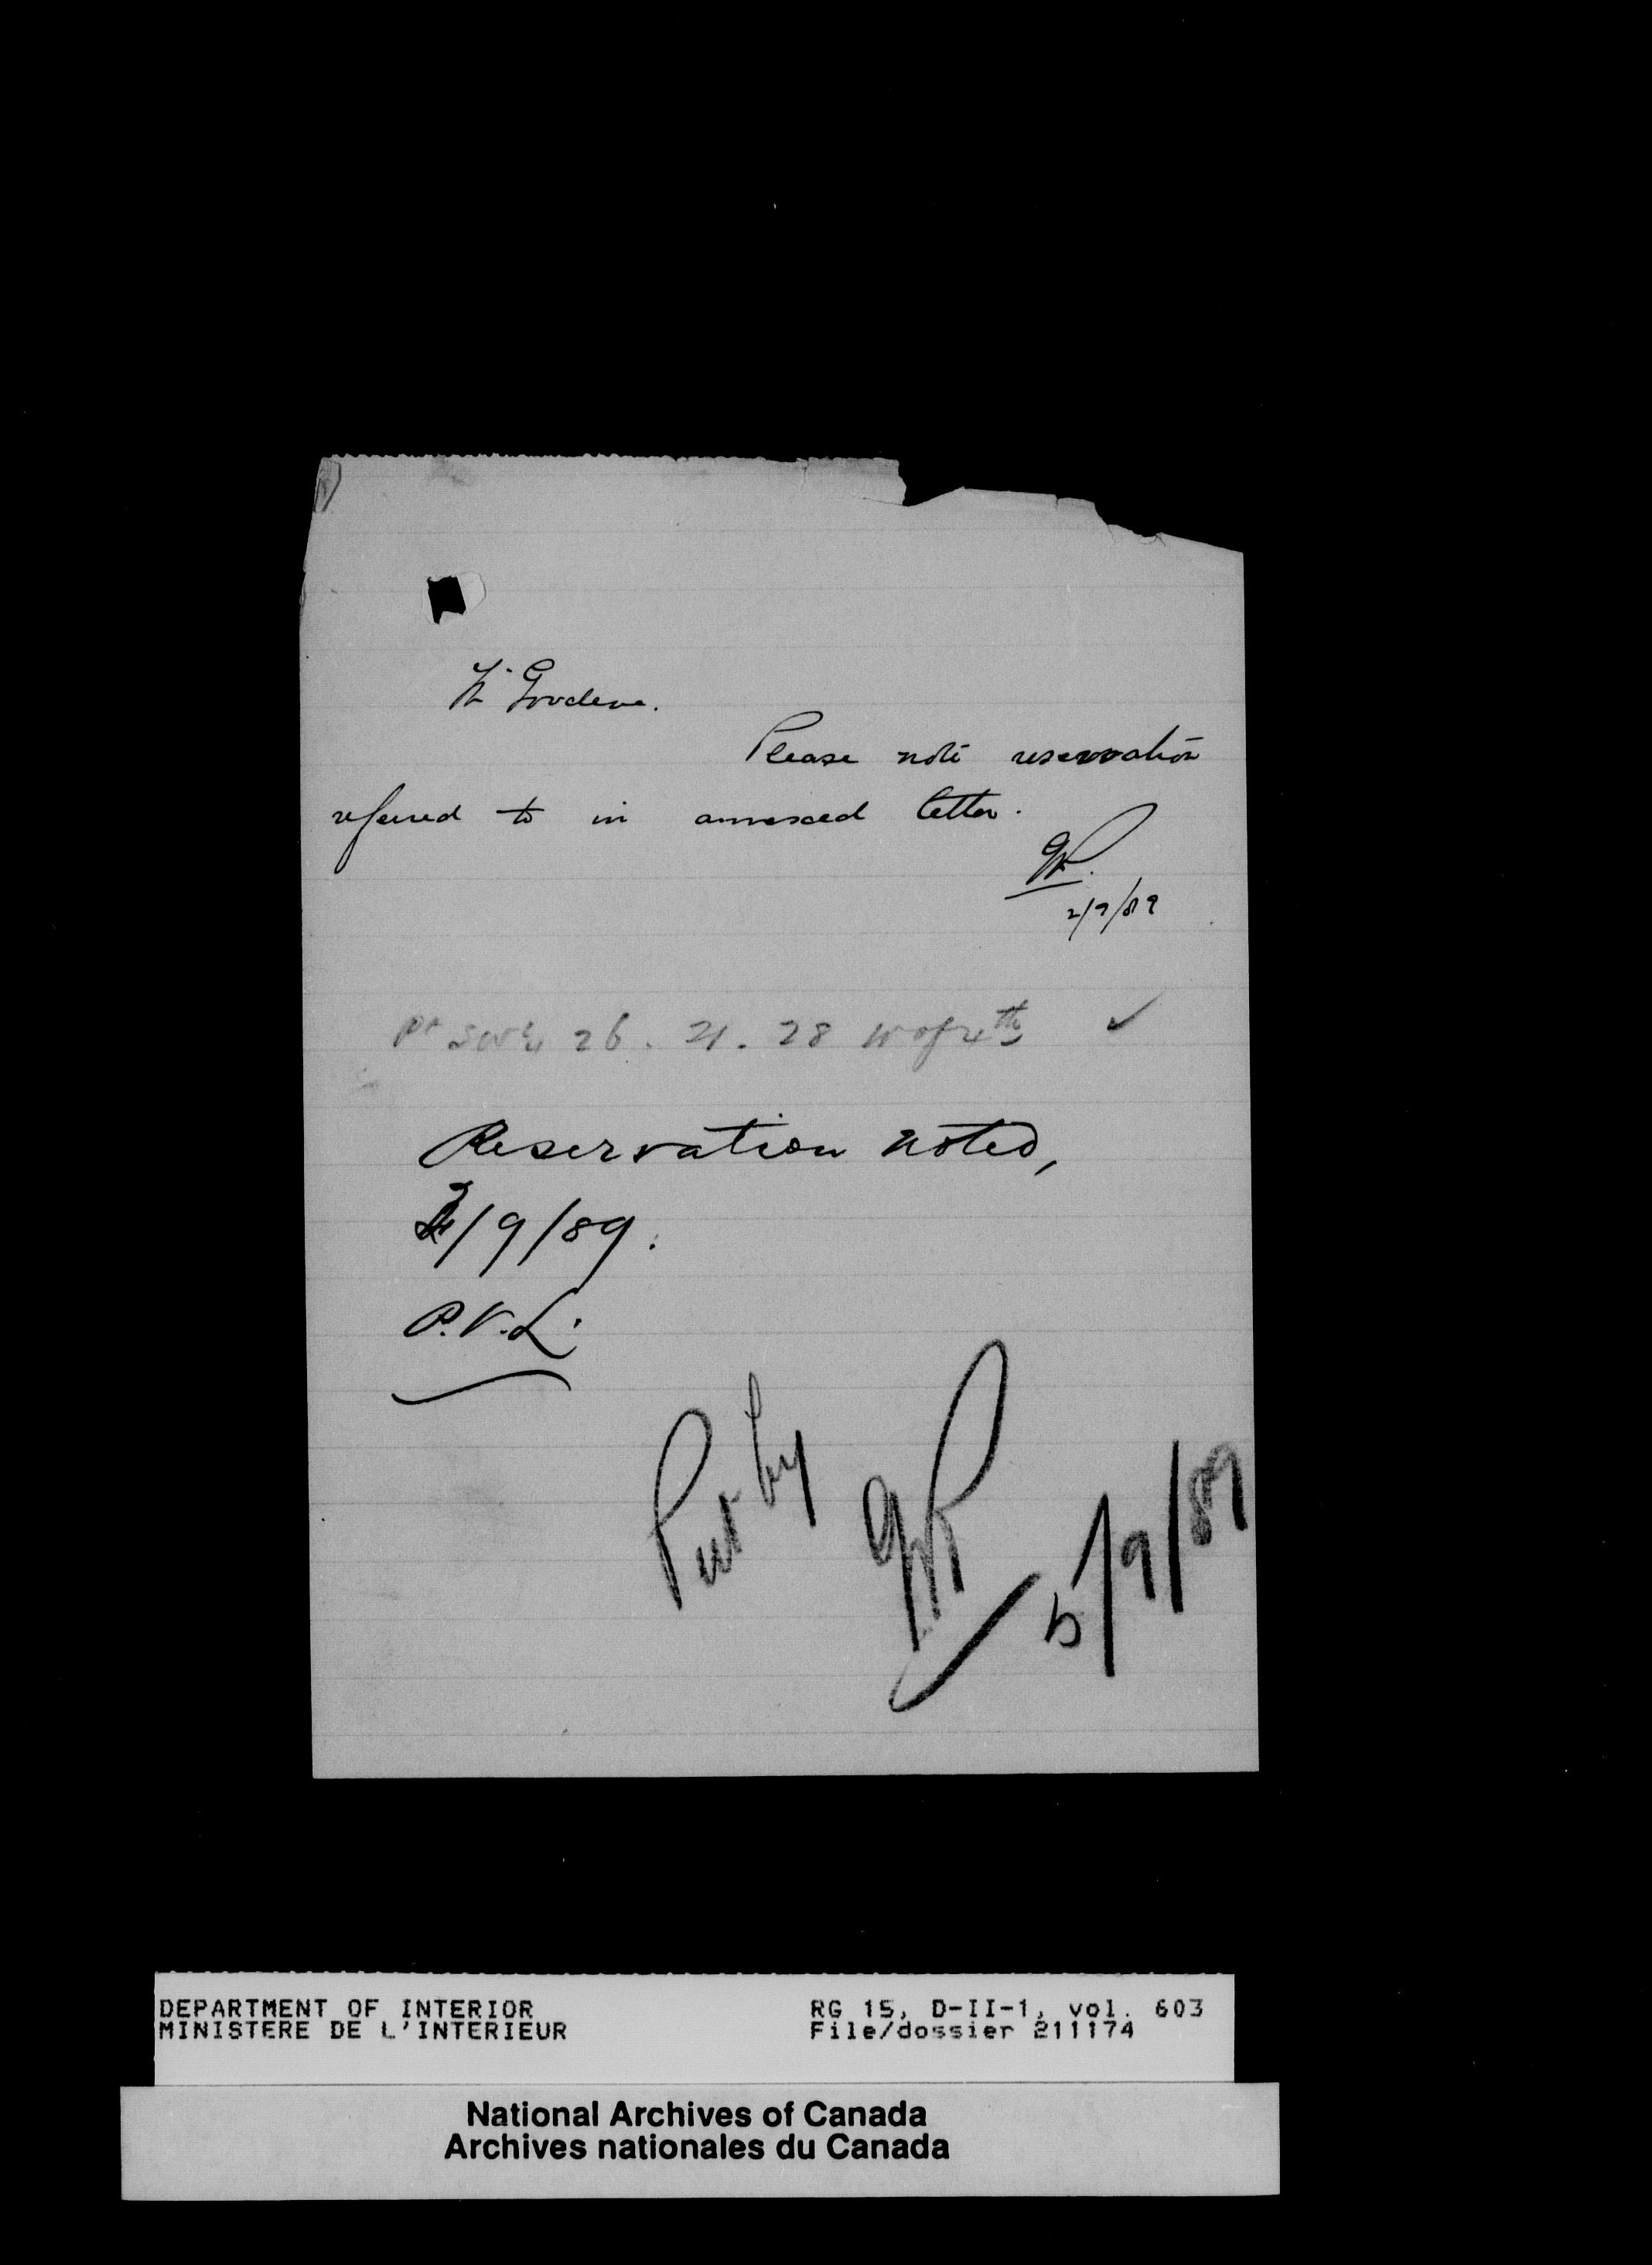 Mr Goodeve.
Please note reservation
referred to in annexed letter.
2/9/89
Pt SW¼ 26. 21. 28 W of 4th ✓
Reservation noted,
3/9/89.
P.V.L.
Put by
5/9/89
DEPARTMENT OF INTERIOR
MINISTERE DE L'INTERIEUR
RG 15, D-II-1, vol. 603
File/dossier 211174
National Archives of Canada
Archives nationales du Canada